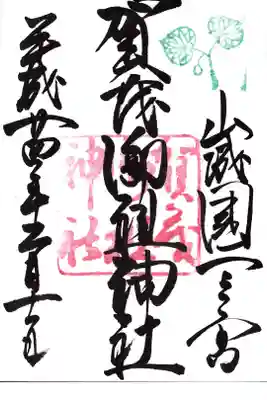 山城國一之宮
賀茂御祖神社
平成廿四年二月十五